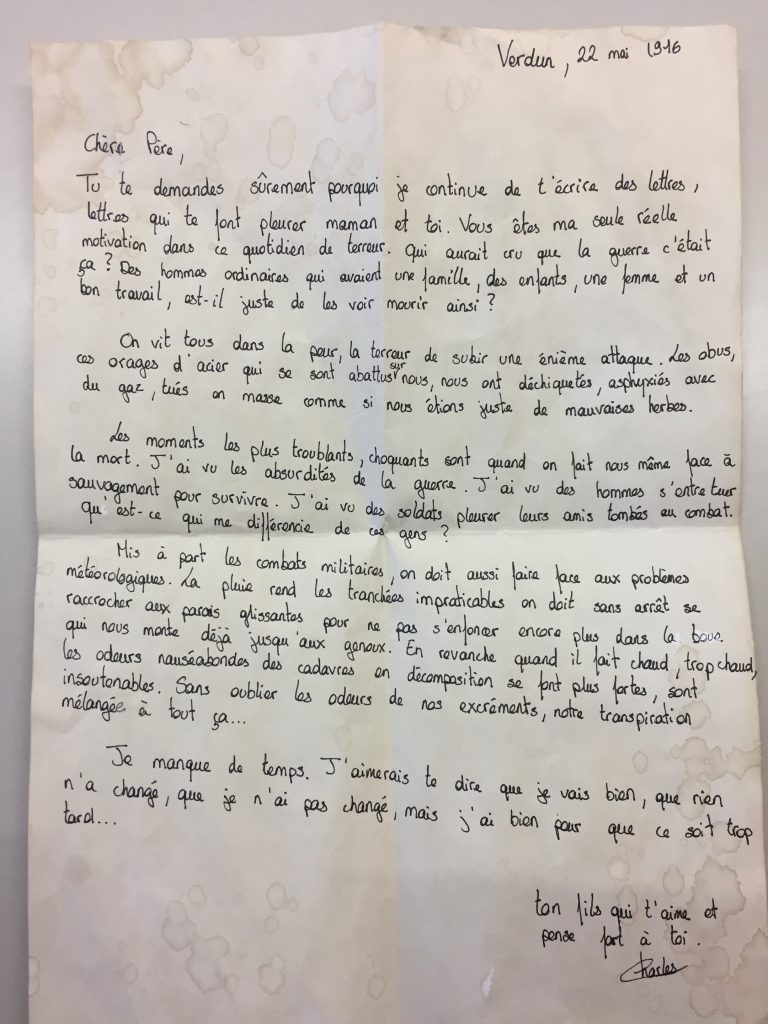 Verdun, 22 mai 1916
Chère Père,
Tu te demandes sûrement pourquoi je continue de t'écrire des lettres,
lettres qui te font pleurer maman et toi. Vous êtes ma seule réelle
motivation dans ce quotidien de terreur. Qui aurait cru que la guerre c'était
ça ? Des hommes ordinaires qui avaient une famille, des enfants, une femme et un
bon travail, est-il juste de les voir mourir ainsi ?
On vit tous dans la peur, la terreur de subir une énième attaque. Les obus,
ces orages d'acier qui se sont abattus sur nous, nous ont déchiquetés, asphyxiés avec
du gaz, tués en masse comme si nous étions juste de mauvaises herbes.
Les moments les plus troublants, choquants sont quand on fait nous même face à
la mort. J'ai vu les absurdités de la guerre. J'ai vu des hommes s'entretuer
sauvagement pour survivre. J'ai vu des soldats pleurer leurs amis tombés au combat.
qu'est-ce qui me différencie de ces gens ?
Mis à part les combats militaires, on doit aussi faire face aux problèmes
météorologiques. La pluie rend les tranchées impraticables on doit sans arrêt se
raccrocher aux parois glissantes pour ne pas s'enfoncer encore plus dans la boue
qui nous monte déjà jusqu'aux genoux. En revanche quand il fait chaud, trop chaud,
les odeurs nauséabondes des cadavres en décomposition se font plus fortes, sont
insoutenables. Sans oublier les odeurs de nos excréments, notre transpiration
mélangée à tout ça...
Je manque de temps. J'aimerais te dire que je vais bien, que rien
n'a changé, que je n'ai pas changé, mais j'ai bien peur que ce soit trop
tard...
ton fils qui t'aime et
pense fort à toi.
Charles